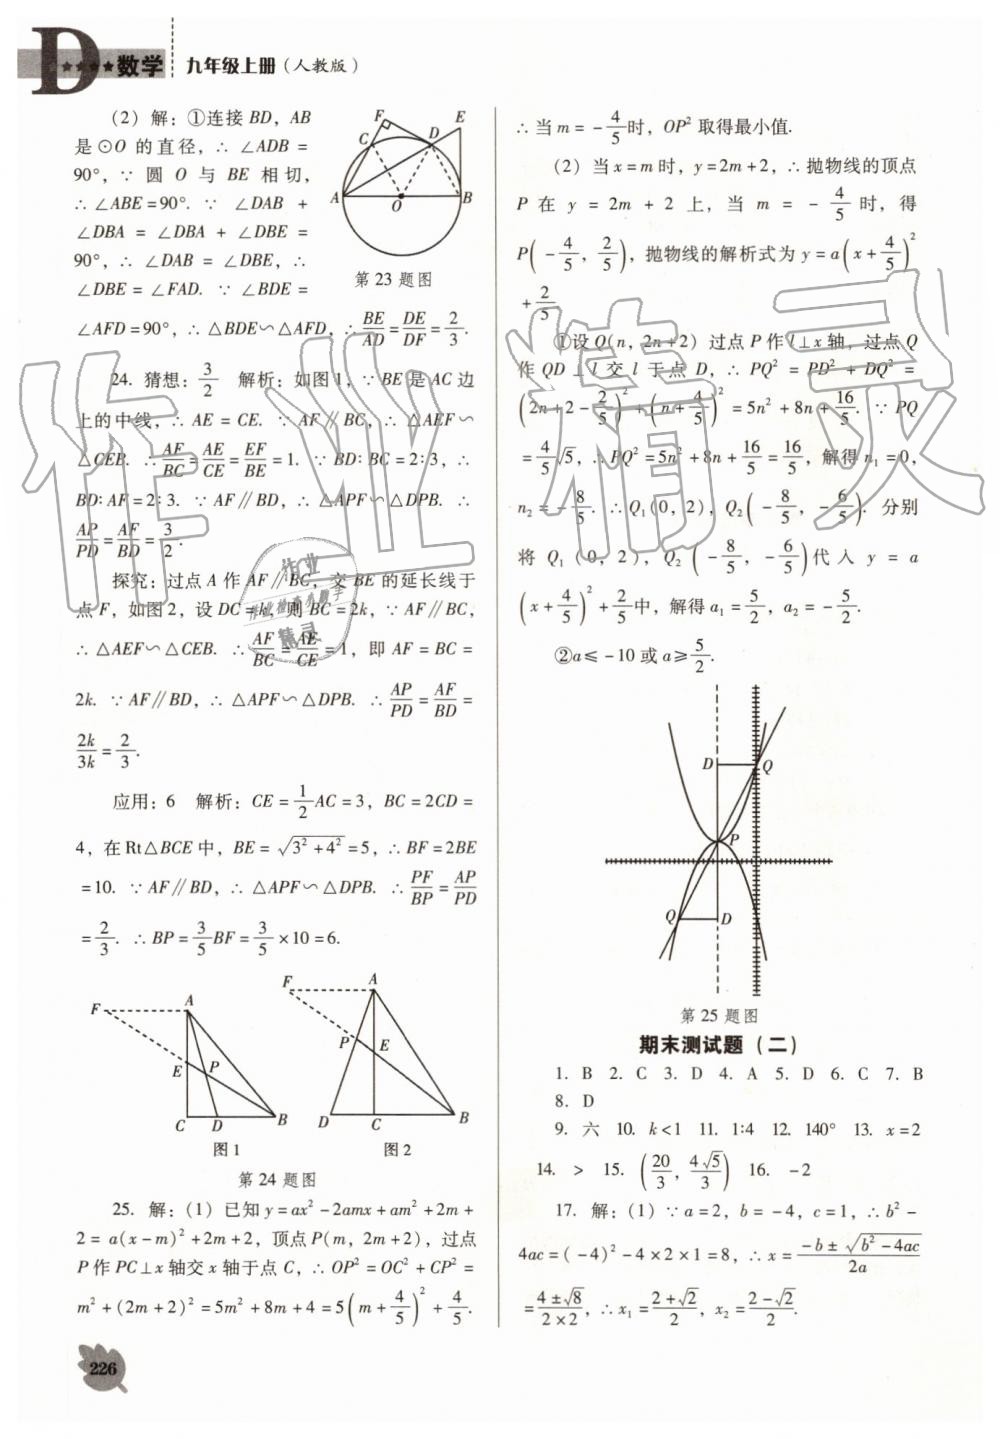 D ★★★★ 数学 九年级上册（人教版）
(2) 解：①连接 BD，AB
是⊙O 的直径，∴ ∠ADB =
90°，∵ 圆 O 与 BE 相切，
∴ ∠ABE = 90°. ∵ ∠DAB +
∠DBA = ∠DBA + ∠DBE =
90°，∴ ∠DAB = ∠DBE，∴
∠DBE = ∠FAD. ∵ ∠BDE =
∠AFD = 90°，∴ △BDE∽△AFD，∴ BE/AD = DE/DF = 2/3.
F C D E A O B
第 23 题图
24. 猜想：3/2 解析：如图 1，∵ BE 是 AC 边
上的中线，∴ AE = CE. ∵ AF∥BC，∴ △AEF∽
△CEB. ∴ AF/BC = AE/CE = EF/BE = 1. ∵ BD∶BC = 2∶3，∴
BD∶AF = 2∶3. ∵ AF∥BD，∴ △APF∽△DPB. ∴
AP/PD = AF/BD = 3/2.
探究：过点 A 作 AF∥BC，交 BE 的延长线于
点 F，如图 2，设 DC = k，则 BC = 2k，∵ AF∥BC，
∴ △AEF∽△CEB. ∴ AF/BC = AE/CE = 1，即 AF = BC =
2k. ∵ AF∥BD，∴ △APF∽△DPB. ∴ AP/PD = AF/BD =
2k/3k = 2/3.
应用：6 解析：CE = 1/2 AC = 3，BC = 2CD =
4，在 Rt△BCE 中，BE = √(3²+4²) = 5，∴ BF = 2BE
= 10. ∵ AF∥BD，∴ △APF∽△DPB. ∴ PF/BP = AP/PD
= 2/3. ∴ BP = 3/5 BF = 3/5 × 10 = 6.
F A E P C D B
图 1
F A P E D C B
图 2
第 24 题图
25. 解：(1) 已知 y = ax² - 2amx + am² + 2m +
2 = a(x - m)² + 2m + 2，顶点 P(m，2m + 2)，过点
P 作 PC⊥x 轴交 x 轴于点 C，∴ OP² = OC² + CP² =
m² + (2m + 2)² = 5m² + 8m + 4 = 5(m + 4/5)² + 4/5.
226
∴ 当 m = - 4/5 时，OP² 取得最小值.
(2) 当 x = m 时，y = 2m + 2，∴ 抛物线的顶点
P 在 y = 2m + 2 上，当 m = - 4/5 时，得
P(- 4/5，2/5)，抛物线的解析式为 y = a(x + 4/5)²
+ 2/5
①设 Q(n，2n+2) 过点 P 作 l⊥x 轴，过点 Q
作 QD⊥l 交 l 于点 D，∴ PQ² = PD² + DQ² =
(2n + 2 - 2/5)² + (n + 4/5)² = 5n² + 8n + 16/5. ∵ PQ
= 4/5 √5，∴ PQ² = 5n² + 8n + 16/5 = 16/5，解得 n₁ = 0，
n₂ = - 8/5. ∴ Q₁(0，2)，Q₂(- 8/5，- 6/5). 分别
将 Q₁(0，2)，Q₂(- 8/5，- 6/5)代入 y = a
(x + 4/5)² + 2/5 中，解得 a₁ = 5/2，a₂ = - 5/2.
②a ≤ - 10 或 a ≥ 5/2.
D Q P Q D
第 25 题图
期末测试题（二）
1. B 2. C 3. D 4. A 5. D 6. C 7. B
8. D
9. 六 10. k<1 11. 1∶4 12. 140° 13. x = 2
14. > 15. (20/3，4√5/3) 16. - 2
17. 解：(1) ∵ a = 2，b = - 4，c = 1，∴ b² -
4ac = (- 4)² - 4 × 2 × 1 = 8，∴ x = (-b ± √(b² - 4ac))/2a
= (4 ± √8)/(2 × 2)，∴ x₁ = (2 + √2)/2，x₂ = (2 - √2)/2.
作业精灵
作业
作业检查小助手
精灵